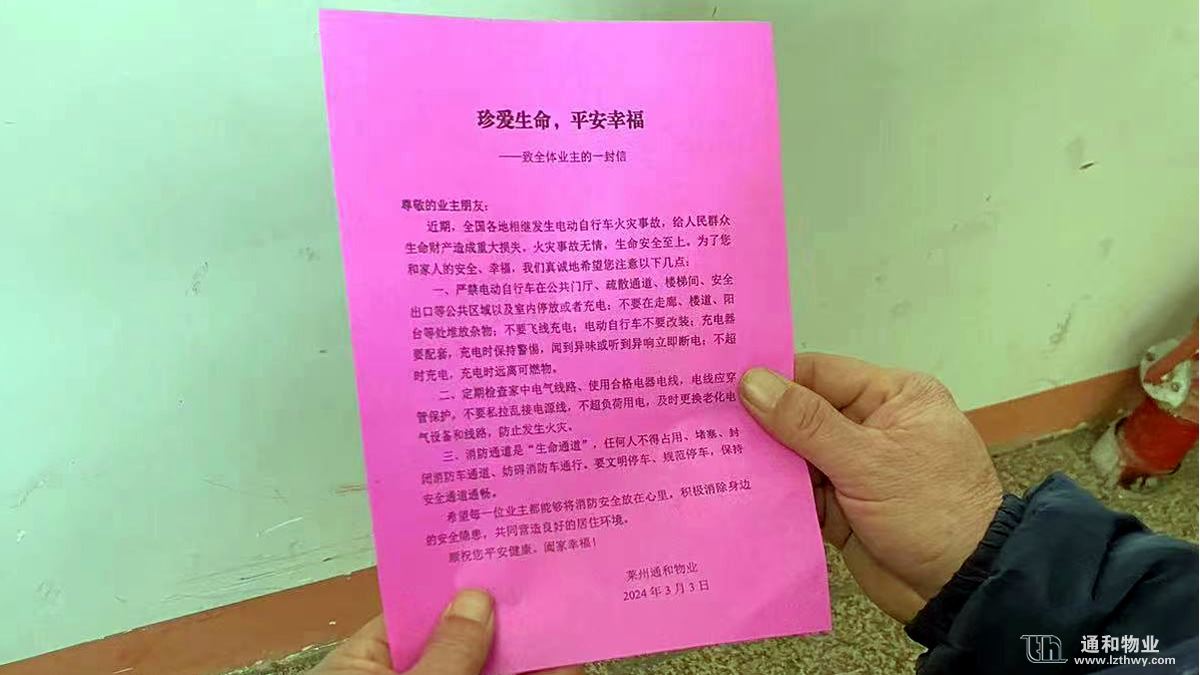 珍爱生命，平安幸福
——致全体业主的一封信
尊敬的业主朋友：
近期，全国各地相继发生电动自行车火灾事故，给人民群众
生命财产造成重大损失。火灾事故无情，生命安全至上。为了您
和家人的安全、幸福，我们真诚地希望您注意以下几点：
一、严禁电动自行车在公共门厅、疏散通道、楼梯间、安全
出口等公共区域以及室内停放或者充电；不要在走廊、楼道、阳
台等处堆放杂物；不要飞线充电；电动自行车不要改装；充电器
要配套，充电时保持警惕，闻到异味或听到异响立即断电；不超
时充电，充电时远离可燃物。
二、定期检查家中电气线路、使用合格电器电线，电线应穿
管保护，不要私拉乱接电源线，不超负荷用电，及时更换老化电
气设备和线路，防止发生火灾。
三、消防通道是“生命通道”，任何人不得占用、堵塞、封
闭消防车通道、妨碍消防车通行。要文明停车、规范停车，保持
安全通道通畅。
希望每一位业主都能够将消防安全放在心里，积极消除身边
的安全隐患，共同营造良好的居住环境。
顺祝您平安健康。阖家幸福！
莱州通和物业
2024年3月3日
th 通和物业
www.lzthwy.com